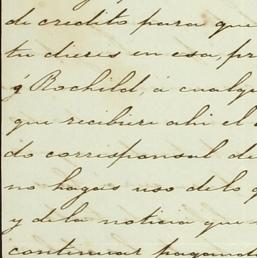 de credito para que
tu dieres en esa, pr
q' Rochild, á cualqu
que recibiere ahi el
do corresponsal de
no hagas uso de lo q
y de la noticia que
continuar pagand